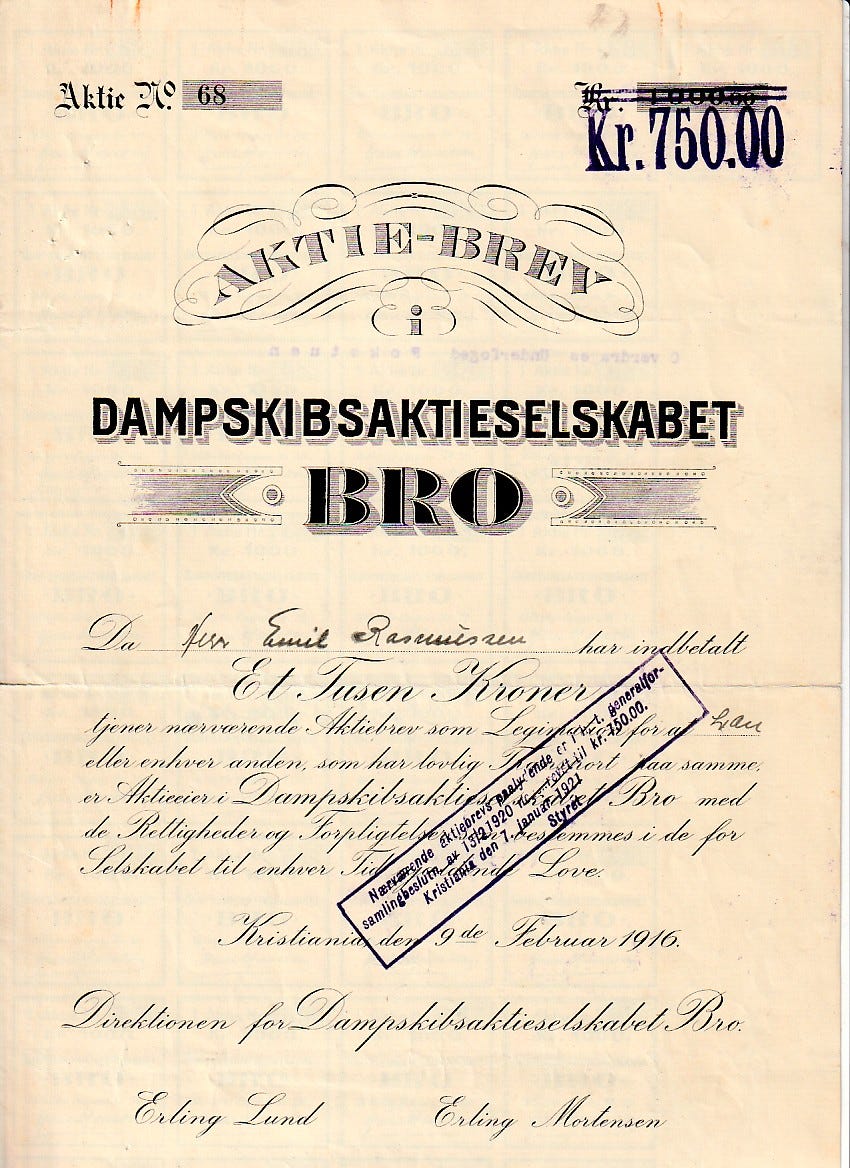 Aktie No. 68
Kr. 1000.00
Kr. 750.00
AKTIE-BREV
i
DAMPSKIBSAKTIESELSKABET
BRO
Da Herr Emil Rasmussen har indbetalt
Et Tusen Kroner
tjener nærværende Aktiebrev som for at han
eller enhver anden, som har lovlig paa samme,
er Aktieeier i Bro med
de Rettigheder og bestemmes i de for
Selskabet til enhver Tid Love.
Nærværende aktiebrevs paalydende er i h. t. generalfor-
samlingbeslutn. av 13/2 1920 til kr. 750.00.
Kristiania den 1. januar 1921
Styret
Kristiania, den 9de Februar 1916.
Direktionen for Dampskibsaktieselskabet Bro.
Erling Lund Erling Mortensen